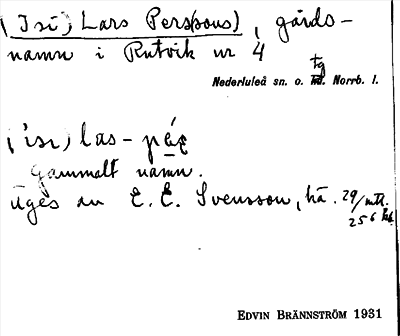 (Isi) Lars Pers(sons), gårds-
namn i Rutvik nr 4
tg
Nederluleå sn. o. Norrb. l.
('isi) las-
Gammalt namn.
Uges av E. E. Svensson, hä. 29/
25 6
EDVIN BRÄNNSTRÖM 1931